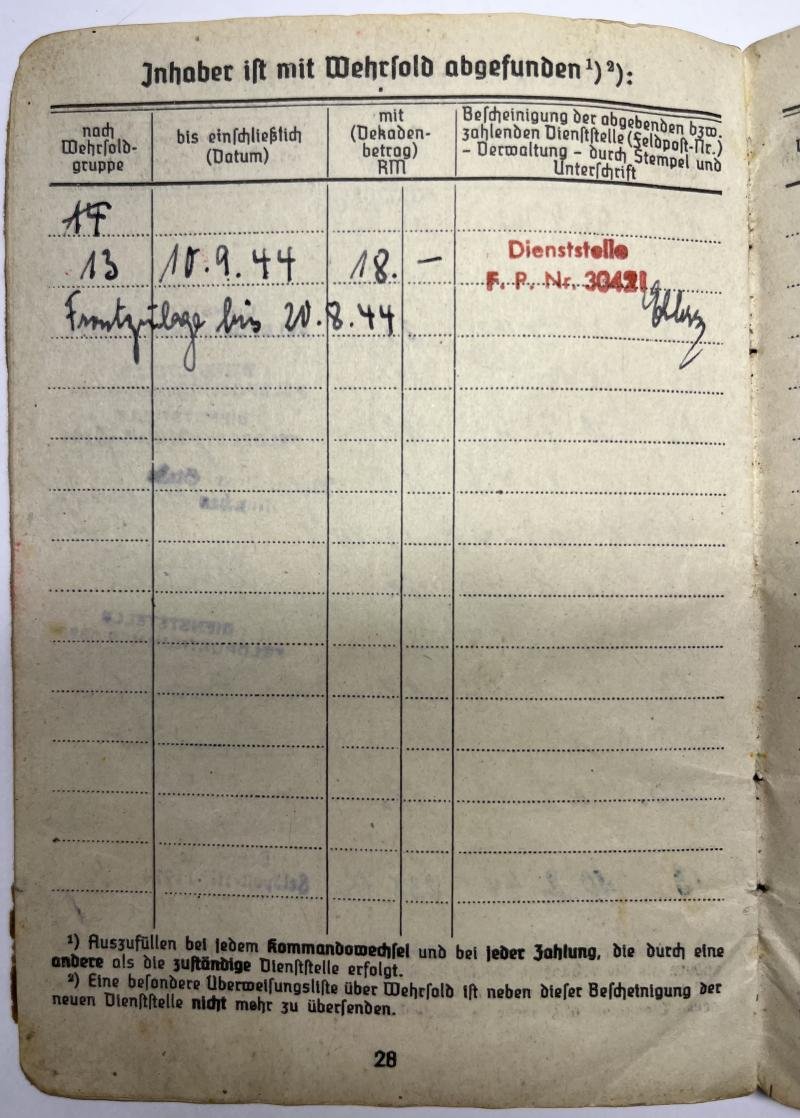 Inhaber iſt mit Wehrſold abgefunden ¹) ²):
nach Wehrſold-gruppe
bis einſchließlich (Datum)
mit (Dekaden-betrag) RM
Beſcheinigung der abgebenden bzw.
zahlenden Dienſtſtelle (Feldpoſt-Nr.)
– Verwaltung – durch Stempel und
Unterſchrift
13 10.9.44 18. – Dienststelle
F. P. Nr. 30421
Frontzulage bis 20.8.44
¹) Auszufüllen bei jedem Kommandowechſel und bei jeder Zahlung, die durch eine
andere als die zuſtändige Dienſtſtelle erfolgt.
²) Eine beſondere Überweiſungsliſte über Wehrſold iſt neben dieſer Beſcheinigung der
neuen Dienſtſtelle nicht mehr zu überſenden.
28